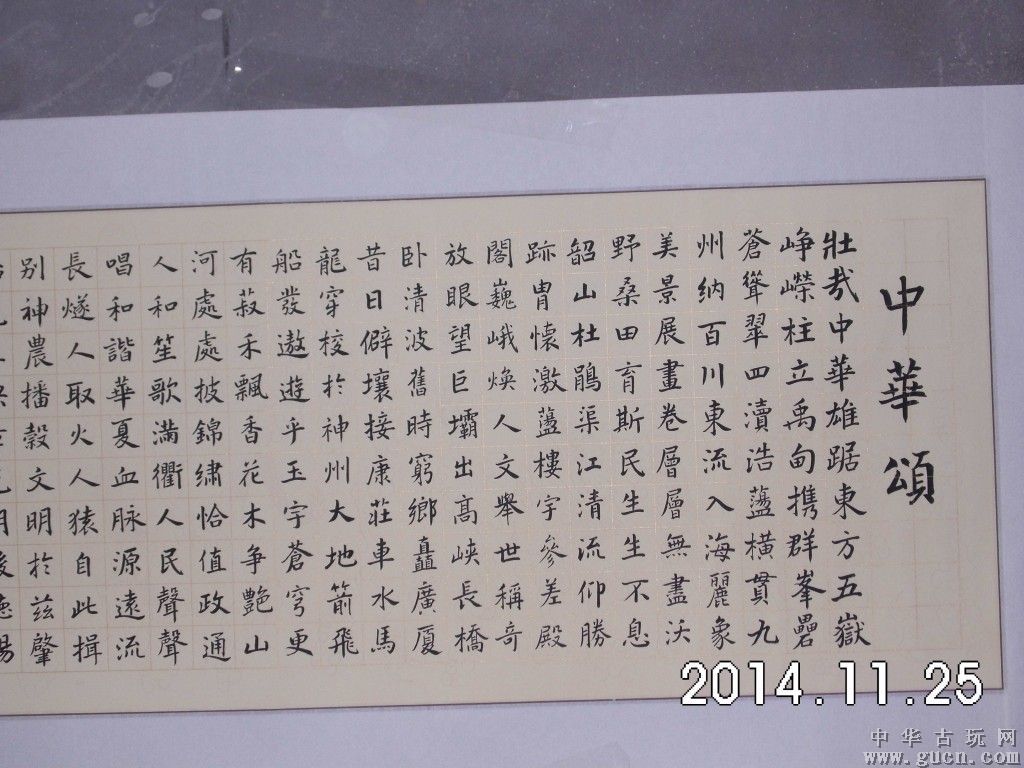 中華頌
壯哉中華雄踞東方五嶽
崢嶸柱立禹甸携群峯礨
蒼聳翠四瀆浩蕩橫貫九
州納百川東流入海麗象
美景展畫卷層層無盡沃
野桑田育斯民生生不息
韶山杜鵑渠江清流仰勝
跡胄懷激蕩樓宇參差殿
閣巍峨煥人文舉世稱奇
放眼望巨壩出高峽長橋
卧清波舊時窮鄉矗廣厦
昔日僻壤接康莊車水馬
龍穿梭於神州大地箭飛
船發遨遊乎玉宇蒼穹更
有菽禾飄香花木争艷山
河處處披錦繡恰值政通
人和笙歌满衢人民聲聲
唱和諧華夏血脉源遠流
長燧人取火人猿自此揖
别神農播穀文明於兹肇
2014.11.25
中华古玩网
www.gucn.com